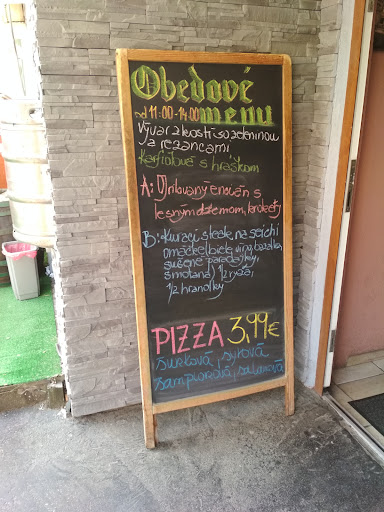 Obedové
od 11:00-14:00 menu
Vývar z kosti so zeleninou
a rezancami
Karfiolová s hráškom
A: Grilovaný enován s
lesným džemom, krokety
B: Kurací steak na
omáčke (biele víno, bazalka,
sušené paradajky,
smotana) 1/2 ryža,
1/2 hranolky
PIZZA 3,99€
šunková, syrová
šampionová, salámová